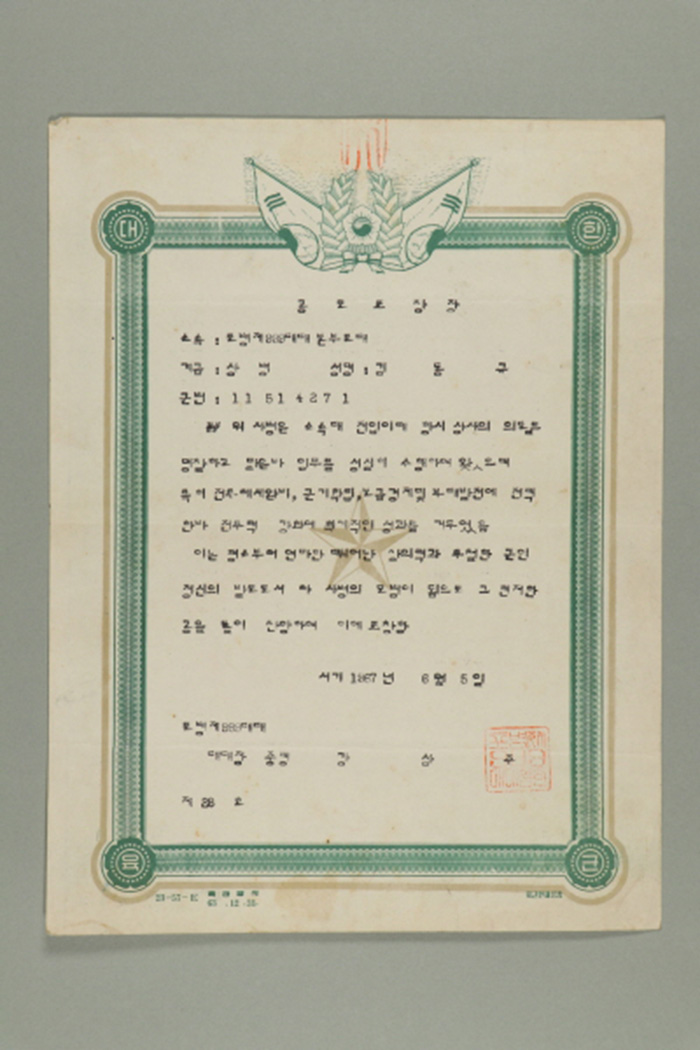 대 한
공 로 표 창 장
소속 : 포병제888대대 본부포대
계급 : 상 병 성명 : 김 동 규
군번 : 11514271
위 사병은 소속대 전입이래 항시 상사의 의도를
명찰하고 맡은바 임무를 성실히 수행하여 왔으며
특히 전투태세완비, 군기확립, 보급경제및 부대발전에 전력
한바 전투력 강화에 획기적인 성과를 거두었음
이는 평소부터 연마한 뛰어난 창의력과 투철한 군인
정신의 발로로서 타 사병의 모범이 됨으로 그 현저한
공을 높이 찬양하여 이에 표창함
서기 1967년 6월 5일
포병제888대대
대대장 중령 강 상 주
제 38 호
육 군